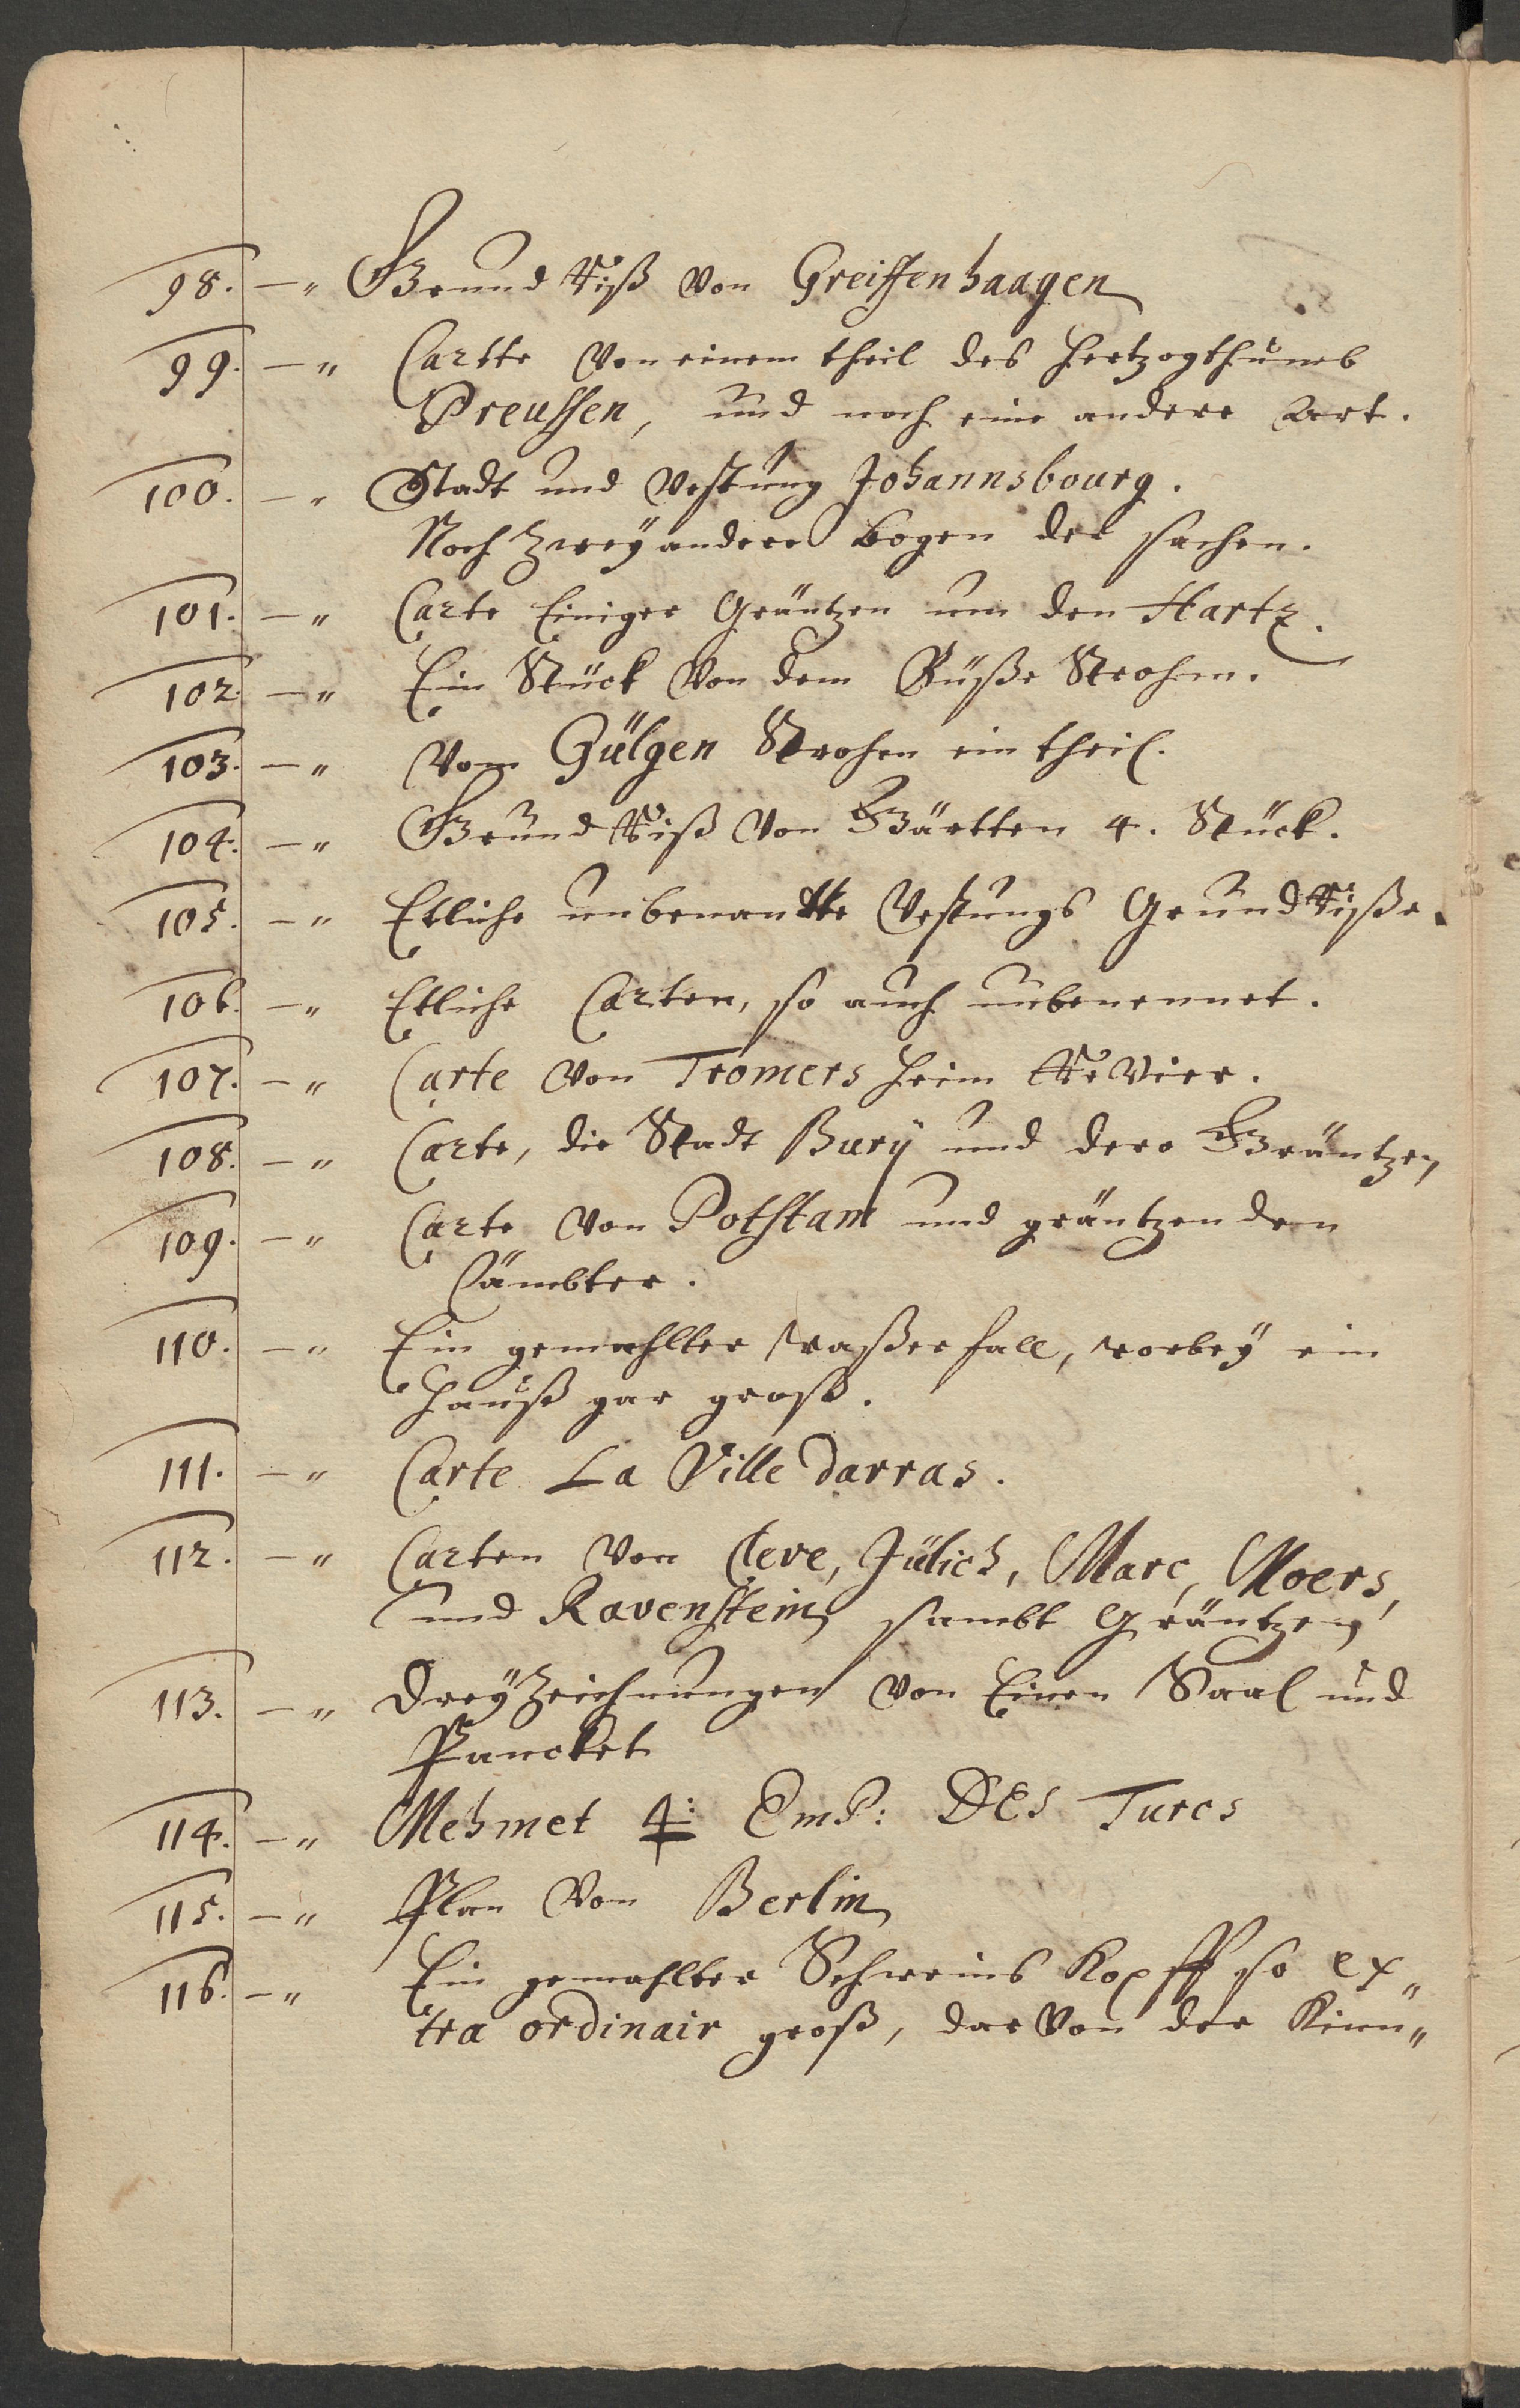 98. — " Grund Riß von Greiffenhaagen
99. — " Cartte von einem theil des Hertzogthumb
Preussen, und noch eine andere Art.
100. — " Stadt und Vestung Johannsbourg.
Noch zweÿ andere bogen der sachen.
101. — " Carte Einiger Gräntzen um den Hartz.
102. — " Ein Stück von dem Rüße Strohm.
103. — " Vom Gülgen Strohm ein theil.
104. — " Grund Riß von Gärtten 4. Stück.
105. — " Etliche unbenantte Vestungs Grund Riße.
106. — " Etliche Carten, so auch unbenennet.
107. — " Carte von Tromers heim Revier.
108. — " Carte, die Stadt Burÿ und dero Gräntzen
109. — " Carte von Potstam und gräntzenden
Aämbter.
110. — " Ein gemahlter waßerfall, worbeÿ ein
Hauß gar groß.
111. — " Carte La Ville darras.
112. — " Carten von Cleve, Jülich, Marc, Moers,
und Ravenstein sambt Gräntzen
113. — " Dreÿ Zeichnungen von Einen Saal und
Pancket
114. — " Mehmet 4: Emp: DES Turcs
115. — " Plan von Berlin
116. — " Ein gemahlter Schweins Kopff so ex"
tra ordinair groß, dar von der Kinn"